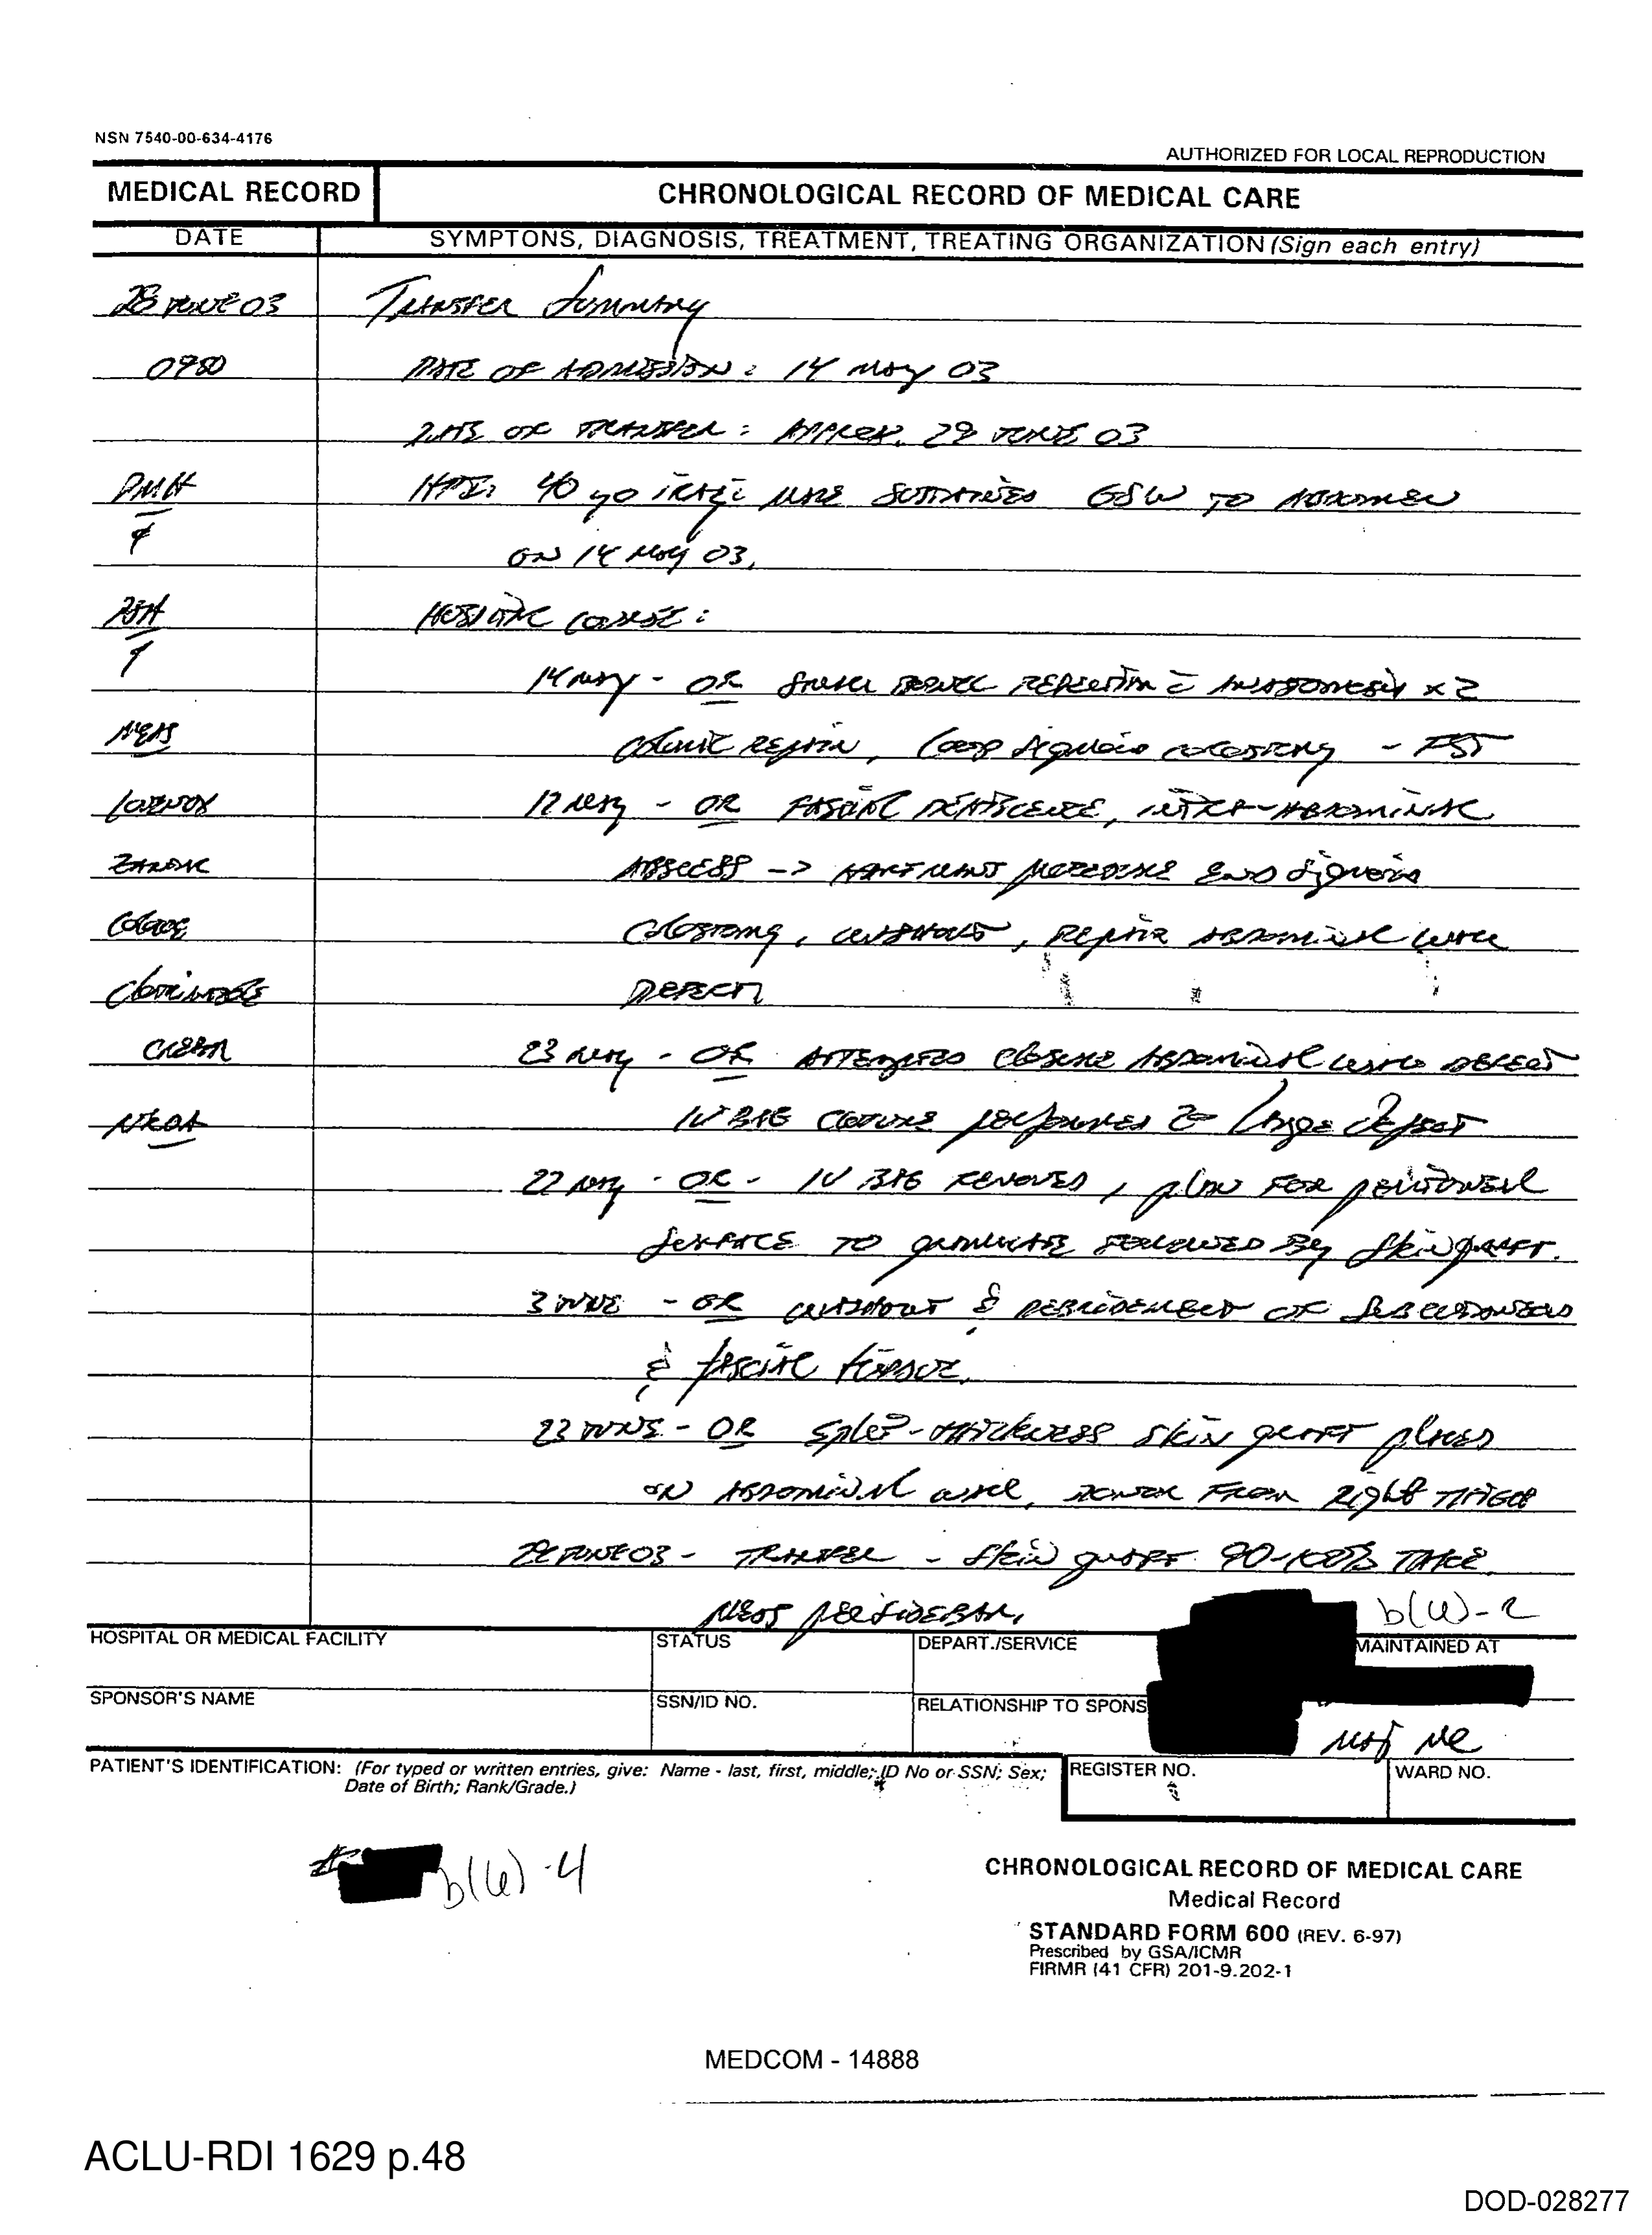 NSN 7540-00-634-4176
AUTHORIZED FOR LOCAL REPRODUCTION
MEDICAL RECORD
CHRONOLOGICAL RECORD OF MEDICAL CARE
DATE
SYMPTONS, DIAGNOSIS, TREATMENT, TREATING ORGANIZATION (Sign each entry)
28 JUNE 03 TRANSFER SUMMARY
DATE OF ADMISSION: 14 MAY 03
DATE OF TRANSFER: APPROX. 29 JUNE 03
PMH HPI: 40 yo IRAQI MALE SUSTAINED GSW TO ABDOMEN
ON 14 MAY 03.
PSH HOSPITAL COURSE:
14 MAY - OR SMALL BOWEL RESECTION c̄ ANASTOMOSIS x 2
MEDS COLONIC REPAIR, LOOP SIGMOID COLOSTOMY - FST
LOVENOX MAY - OR FASCIAL DEHISCENCE, INTRA-ABDOMINAL
ZANTAC ABSCESS -> HARTMANS PROCEDURE END SIGMOID
COLACE COLOSTOMY, WASHOUT, REPAIR ABDOMINAL WALL
DEFECT
23 MAY - OR ATTEMPTED CLOSURE ABDOMINAL WALL DEFECT
NKDA IV BAG CLOSURE PERFORMED 2° LARGE DEFECT
27 MAY - OR - IV BAG REMOVED, PLAN FOR PERITONEAL
SURFACE TO GRANULATE FOLLOWED BY SKIN GRAFT.
3 JUNE - OR WASHOUT & DEBRIDEMENT OF SUBCUTANEOUS
& FASCIAL TISSUE.
23 JUNE - OR SPLIT-THICKNESS SKIN GRAFT PLACED
ON ABDOMINAL WALL, DONOR FROM RIGHT THIGH
JUNE 03 - TRANSFER - SKIN GRAFT 90-100% TAKE.
b(6)-2
HOSPITAL OR MEDICAL FACILITY
STATUS
DEPART./SERVICE
MAINTAINED AT
SPONSOR'S NAME
SSN/ID NO.
RELATIONSHIP TO SPONS
MAJ MC
PATIENT'S IDENTIFICATION: (For typed or written entries, give: Name - last, first, middle; ID No or SSN; Sex;
Date of Birth; Rank/Grade.)
REGISTER NO.
WARD NO.
# b(6)-4
CHRONOLOGICAL RECORD OF MEDICAL CARE
Medical Record
STANDARD FORM 600 (REV. 6-97)
Prescribed by GSA/ICMR
FIRMR (41 CFR) 201-9.202-1
MEDCOM - 14888
ACLU-RDI 1629 p.48
DOD-028277